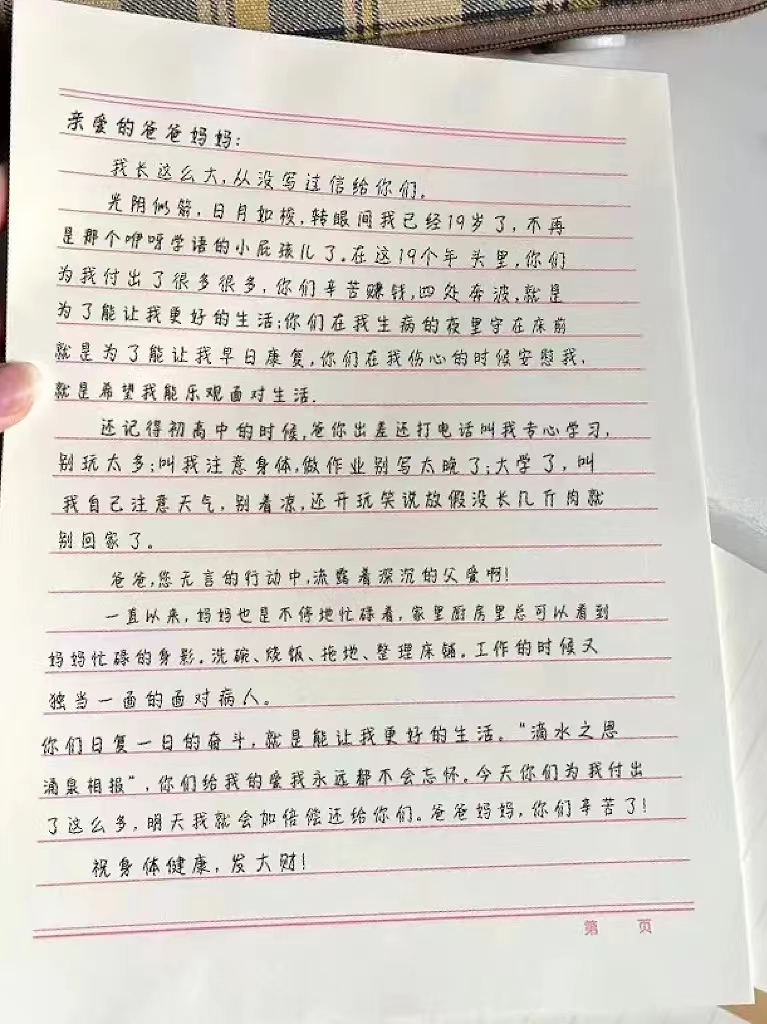 亲爱的爸爸妈妈:
我长这么大,从没写过信给你们。
光阴似箭,日月如梭,转眼间我已经19岁了,不再
是那个咿呀学语的小屁孩儿了。在这19个年头里,你们
为我付出了很多很多,你们辛苦赚钱,四处奔波,就是
为了能让我更好的生活;你们在我生病的夜里守在床前
就是为了能让我早日康复,你们在我伤心的时候安慰我,
就是希望我能乐观面对生活.
还记得初高中的时候,爸你出差还打电话叫我专心学习,
别玩太多;叫我注意身体,做作业别写太晚了;大学了,叫
我自己注意天气,别着凉,还开玩笑说放假没长几斤肉就
别回家了。
爸爸,您无言的行动中,流露着深沉的父爱啊!
一直以来,妈妈也是不停地忙碌着,家里厨房里总可以看到
妈妈忙碌的身影.洗碗、烧饭、拖地、整理床铺.工作的时候又
独当一面的面对病人。
你们日复一日的奋斗,就是能让我更好的生活。“滴水之恩
涌泉相报”,你们给我的爱我永远都不会忘怀。今天你们为我付出
了这么多,明天我就会加倍偿还给你们。爸爸妈妈,你们辛苦了!
祝身体健康,发大财!
第 页